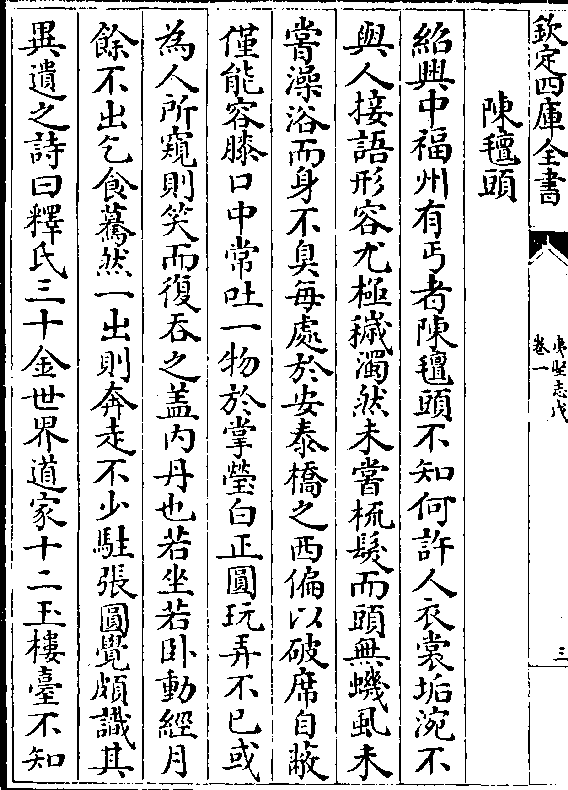 欽定四庫全書
夷堅志戊
卷一
三
陳氊頭
紹興中福州有丐者陳氊頭不知何許人衣裳垢涴不
與人接語形容尤極穢濁然未嘗梳髮而頭無蟣虱未
嘗澡浴而身不臭每處於安泰橋之西偏以破席自蔽
僅能容膝口中常吐一物於掌瑩白正圓玩弄不已或
為人所窺則笑而復吞之蓋内丹也若坐若卧動經月
餘不出乞食驀然一出則奔走不少駐張圓覺頗識其
異遺之詩曰釋氏三十金世界道家十二玉樓臺不知